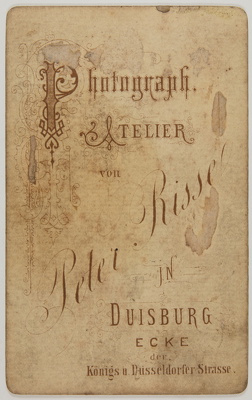 Photograph.
ATELIER
von
Peter Risse
IN
DUISBURG
ECKE
der
Königs u. Düsseldorfer Strasse.